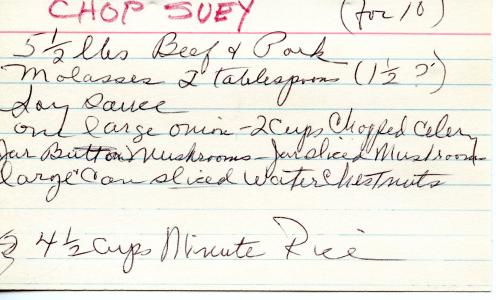 CHOP SUEY (for 10)
5 1/2 lbs Beef & Pork
Molasses 2 tablespoons (1 1/2 ?)
Soy sauce
one large onion - 2 cups Chopped Celery
Jar Button Mushrooms - Jar sliced Mushrooms
large Can sliced Water Chestnuts
4 1/2 Cups Minute Rice